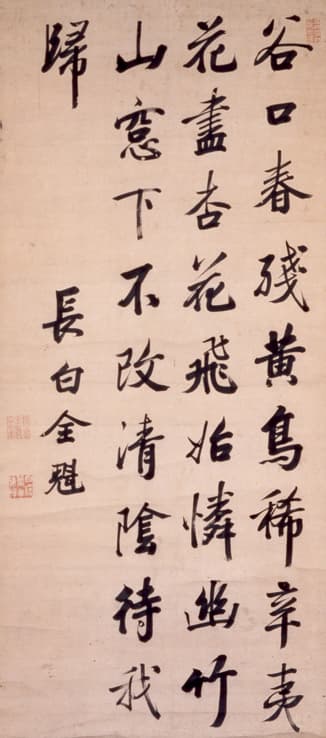 谷口春殘黃鳥稀辛夷
花盡杏花飛始憐幽竹
山窓下不改清陰待我
歸
長白全魁